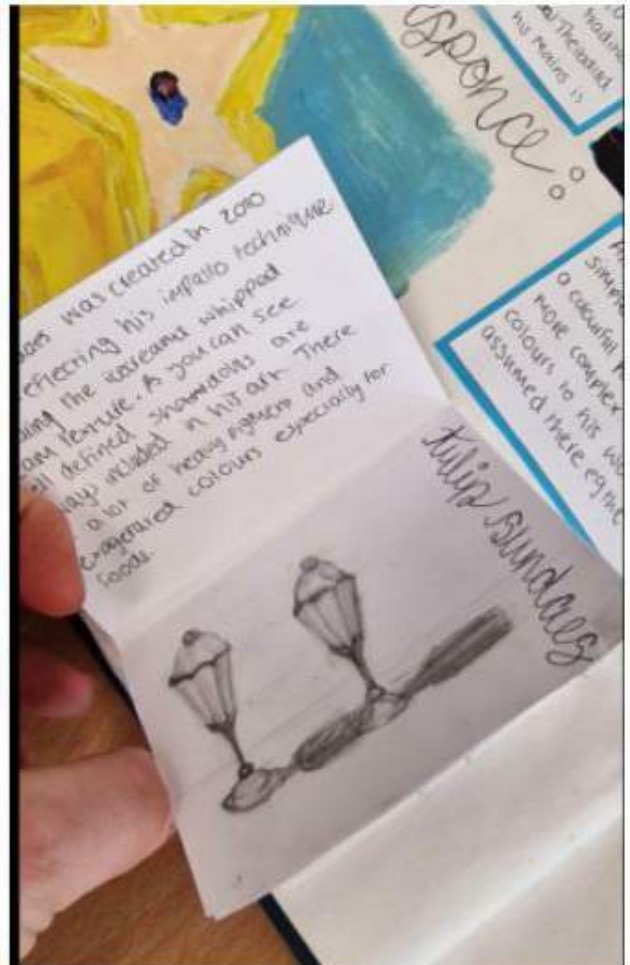 sponce:
heading
his means is
was created in 2010
eflecting his impasto technique
the icecreams whipped
texture. As you can see
ll defined shawdows are
included in his art. There
a lot of heavy pigment and
exagerated colours especially for
foods.
tulip sundaes
simpl
a colourfull p
more complex
colours to his wo
assumed there eg the